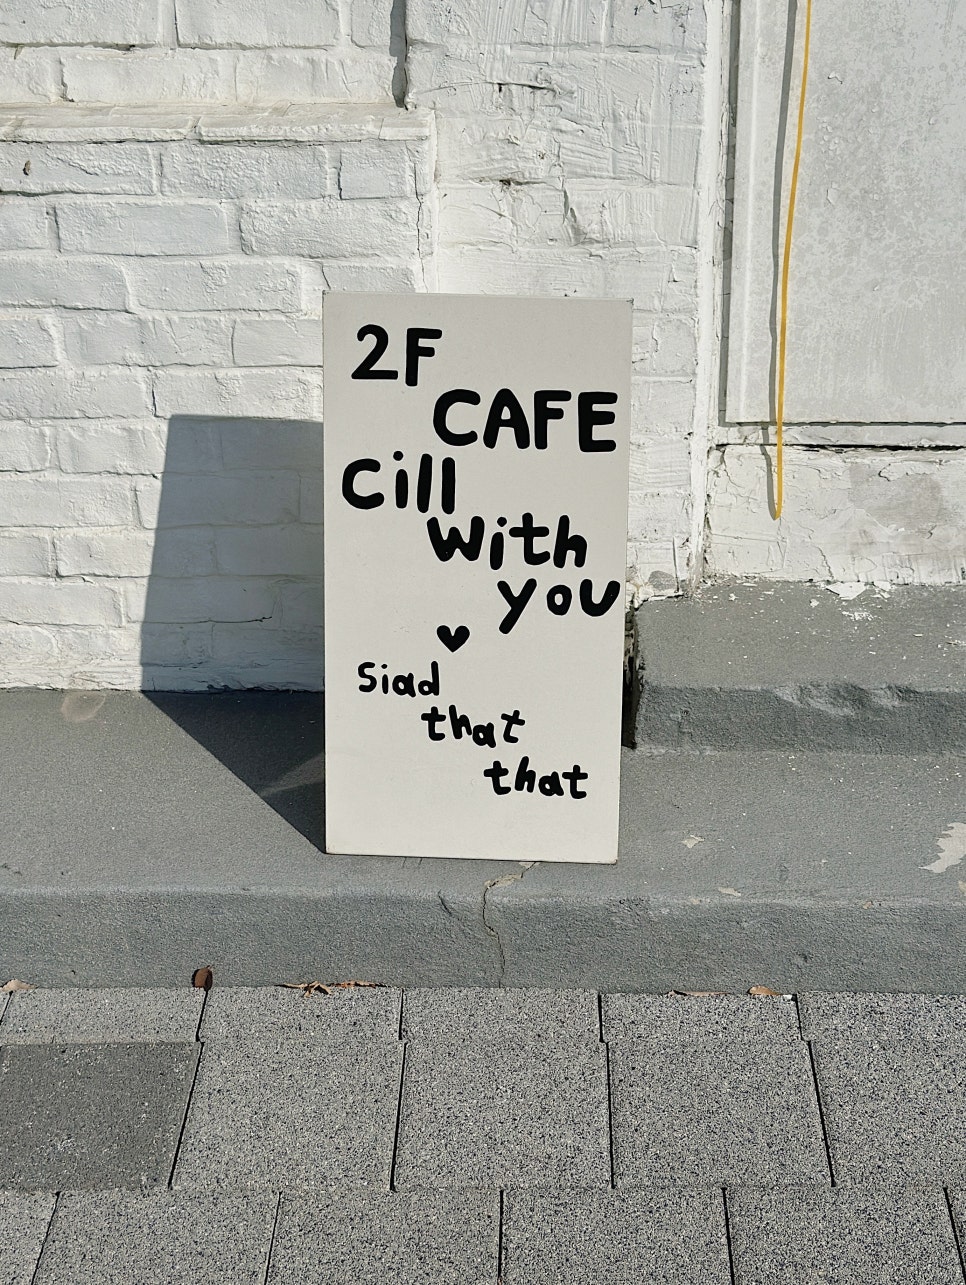 2F
CAFE
Cill
With
you
♥
Siad
that
that